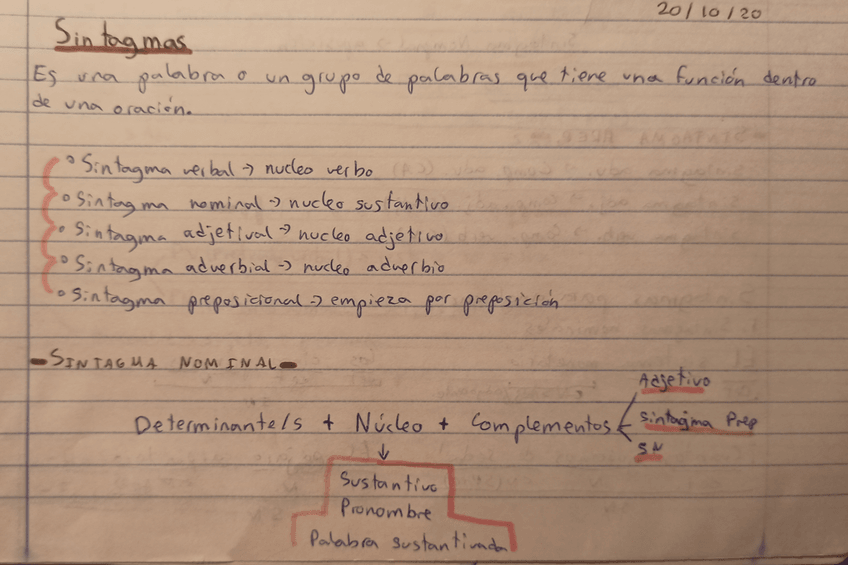 20/10/20
Sintagmas
Es una palabra o un grupo de palabras que tiene una función dentro
de una oración.
Sintagma verbal → nucleo verbo
Sintagma nominal → nucleo sustantivo
Sintagma adjetival → nucleo adjetivo
Sintagma adverbial → nucleo adverbio
Sintagma preposicional → empieza por preposición
- SINTAGMA NOMINAL -
Adjetivo
Determinante/s + Núcleo + Complementos < Sintagma Prep
SN
↓
Sustantivo
Pronombre
Palabra sustantivada